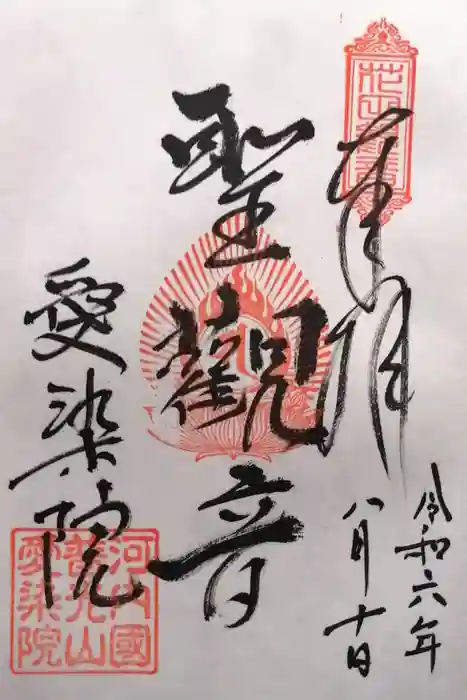 奉拝
令和六年
八月十日
聖觀音
愛染院
河内國
普光山
愛染院